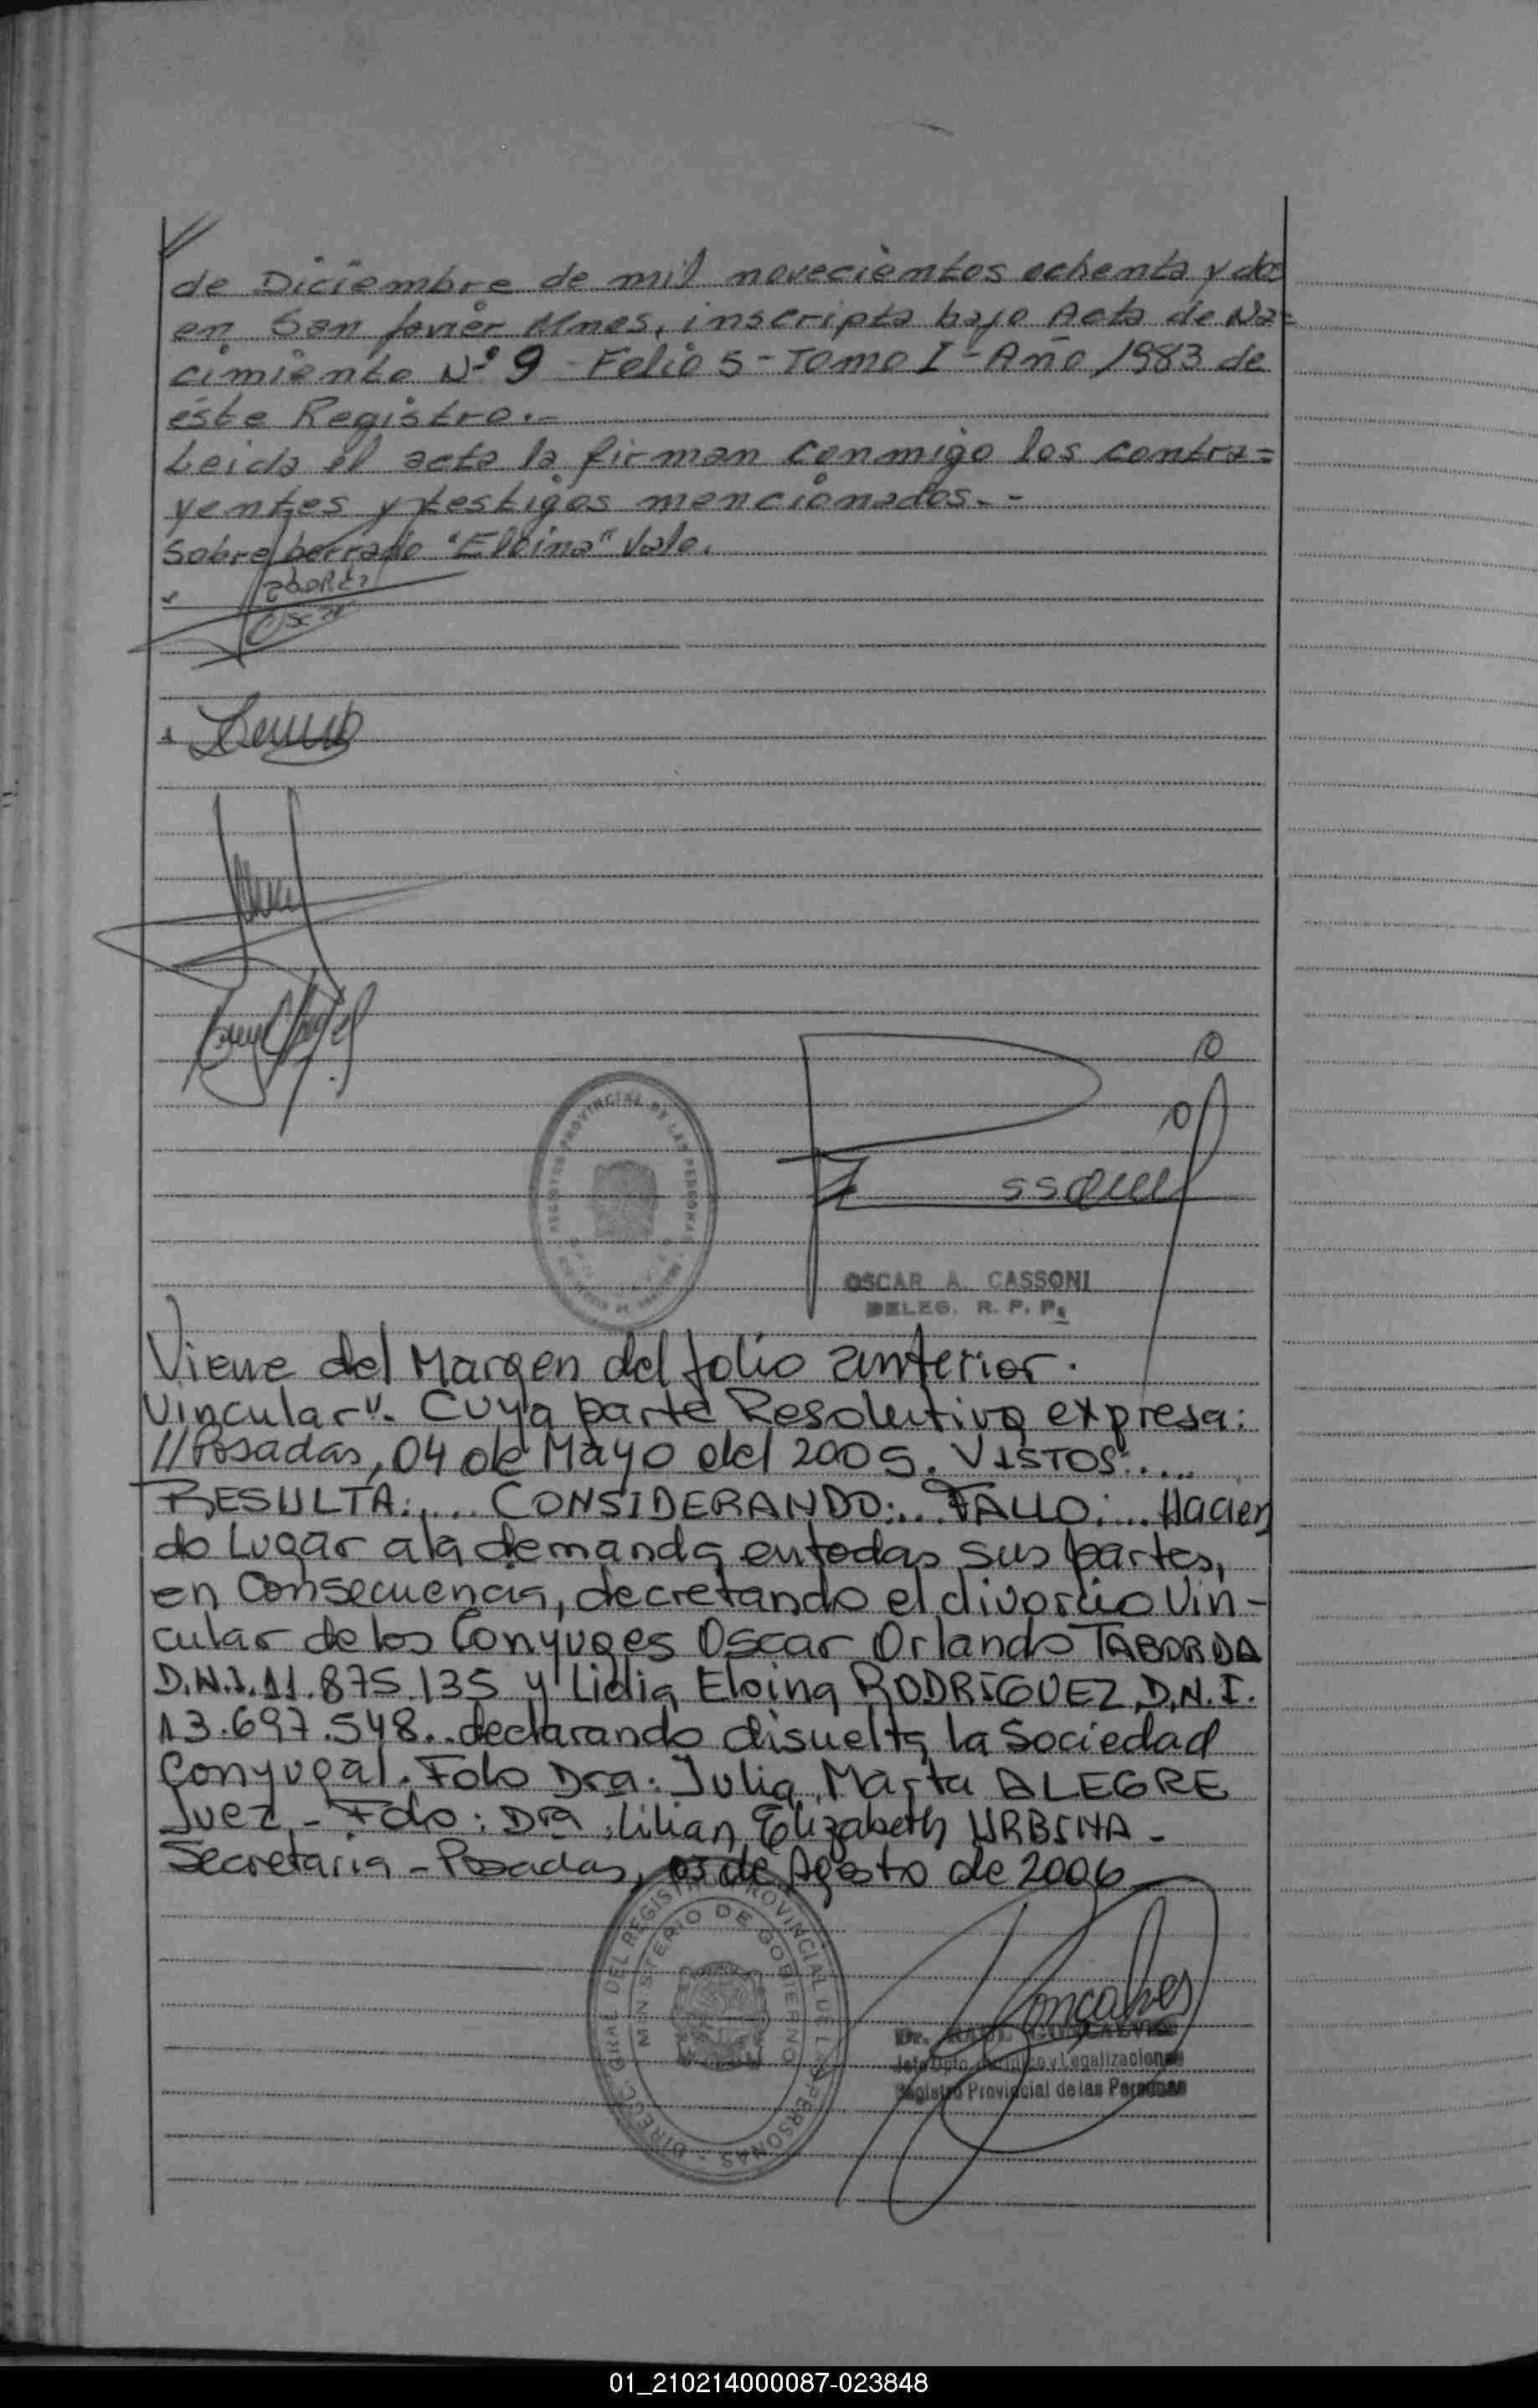 //
de Diciembre de mil novecientos ochenta y dos
en San Javier Mnes, inscripta bajo Acta de Na=
cimiento Nº 9 - Folio 5 - Tomo I - Año 1983 de
éste Registro.-
Leida el acta la firman conmigo los contra=
yentes y testigos mencionados.-
Sobre borrado "Eloina" Vale.
REGISTRO PROVINCIAL DE LAS PERSONAS
OSCAR A. CASSONI
DELEG. R. P. P.
Viene del Margen del folio anterior.
Vincular". Cuya parte Resolutiva expresa:
//Posadas, 04 de Mayo del 2005. VISTOS:....
RESULTA:.... CONSIDERANDO:... FALLO:... Hacien
do Lugar a la demanda en todas sus partes,
en Consecuencia, decretando el divorcio Vin-
cular de los Conyuges Oscar Orlando TABORDA
D.N.I. 11.875.135 y Lidia Eloina RODRIGUEZ, D.N.I.
13.697.548.. declarando disuelta la Sociedad
Conyugal. Fdo Dra. Julia Marta ALEGRE
Juez - Fdo: Dra. Lilian Elizabeth URBINA -
Secretaria - Posadas, 03 de Agosto de 2006
DIRECC. GRAL DEL REGISTRO PROVINCIAL DE LAS PERSONAS
MINISTERIO DE GOBIERNO
Dr. RAUL GONCALVES
Jefe Dpto. Jurídico y Legalizaciones
Registro Provincial de las Personas
01_210214000087-023848